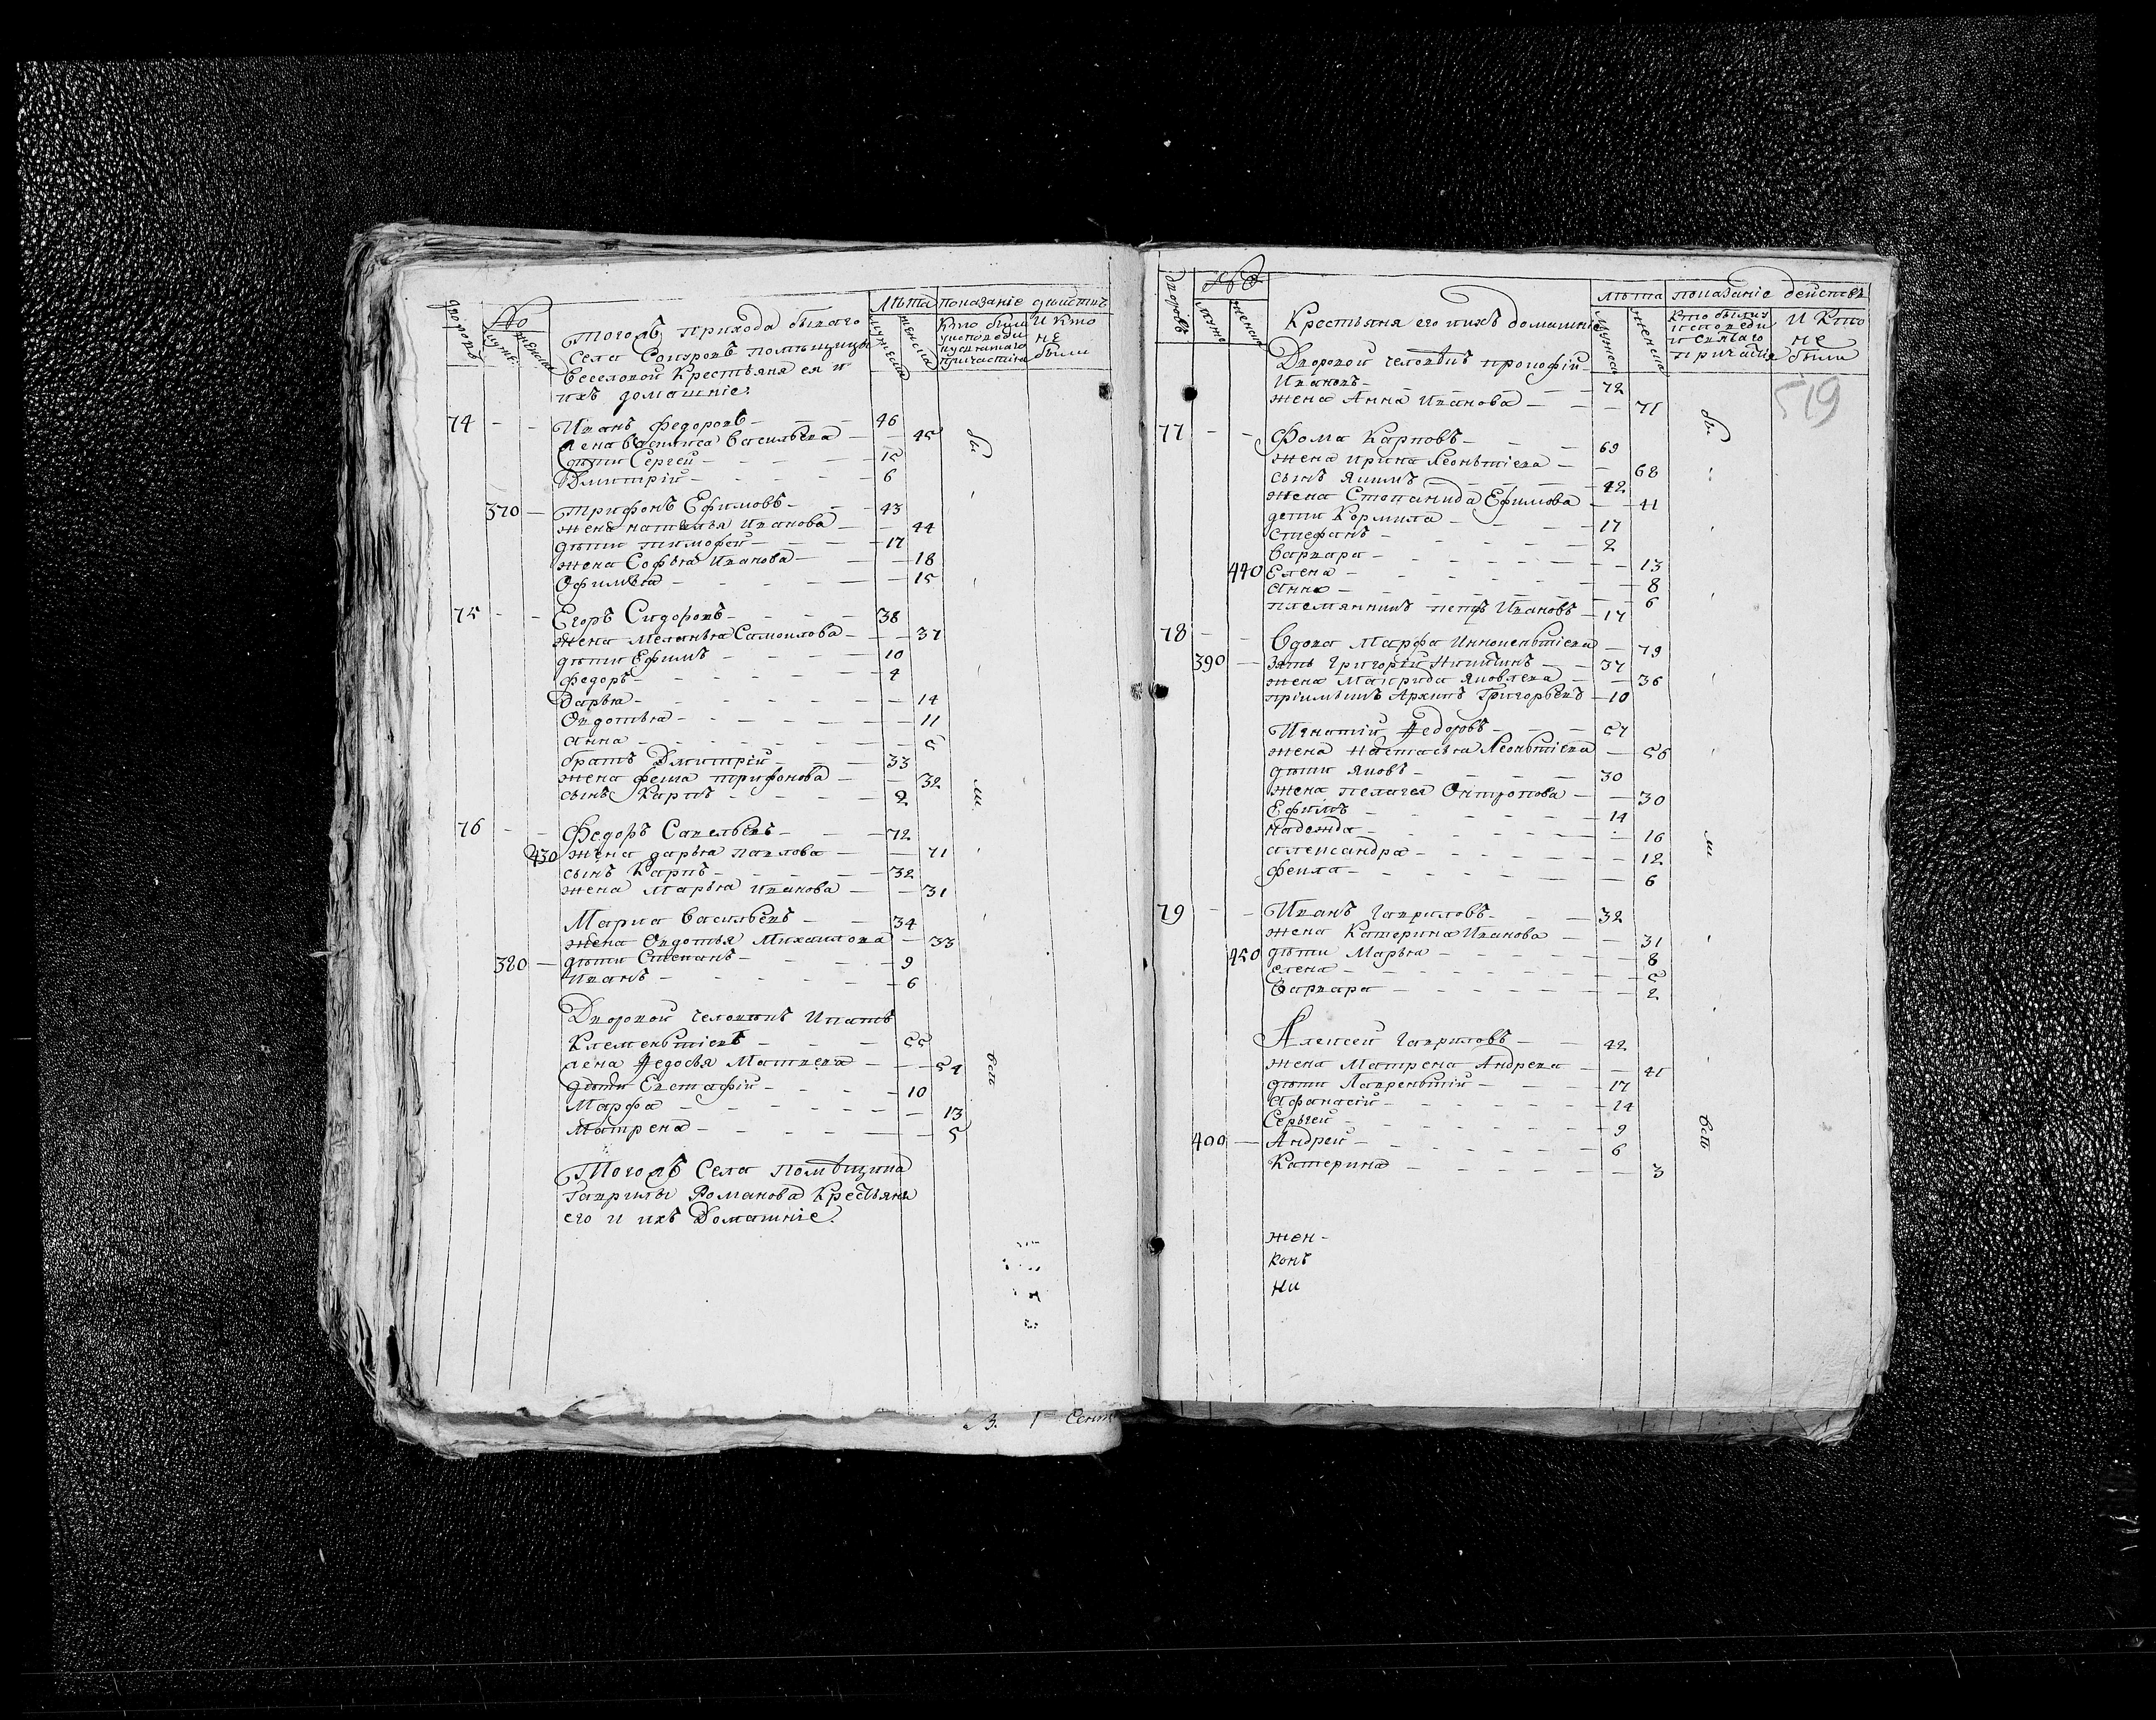 дворовъ
№
мужес
женска
Тогожъ прихода бываго
Села помѣщицы
Веселовой Крестьяня ея и
ихъ домашніе
лѣта
мужеска
женска
показаніе дѣиств
кто были
уисповеди
исвятаго
причастія
и кто
не
были
74 - - Иванъ Федоровъ - - - 46
жена Василиса Васильева - - 45
дѣти Сергеи - - - 15
Дмитріи - - - 6
370 - Трифонъ Ефимовъ - - 43
жена наталья Иванова - - 44
дѣти тимофеи - - - 17
жена Софья Иванова - - 18
Офимья - - - 15
75 - - Егоръ Сидоровъ - - - 38
жена Меланья Самоилова - - 37
дѣти Ефимъ - - - 10
Федоръ - - - 4
Дарья - - - 14
Овдотья - - - 11
Анна - - - 5
братъ Дмитреи - - - 33
жена фекла трифонова - - 32
сынъ Карпъ - - - 2
76 - - Федоръ Савельевъ - - - 72
430 жена дарья павлова - - 71
сынъ Карпъ - - - 32
жена Марья Иванова - - 31
Марка Васильевъ - - 34
жена Овдотья Михаилова - 33
380 - дѣти Степанъ - - - 9
Иванъ - - - 6
Дворовой человѣкъ Ипатъ
Клеменьтіевъ - - - 55
жена Федосья Матвева - - 54
дѣти Евстафіи - - - 10
Марфа - - - 13
Матрена - - - 5
Тогожъ Села помѣщика
Гаврилы Романова Крестьяня
его и ихъ Домашніе.
бы
ли
всѣ
3. 1 Сент
дворовъ
№
мужес
женска
Крестьяня его иихъ домашніе
лѣта
мужеска
женска
показаніе деиствъ
кто былиу
исповеди
и святаго
причастія
и кто
не
были
519
Дворовой человѣкъ прокофіи
Ивановъ - - - 72
жена Анна Иванова - - 71
77 - - Фома Карповъ - - - 69
жена ирина Леоньтіева - - 68
сынъ Якимъ - - - 42
жена Степанида Ефимова - - 41
дети Кормила - - - 17
Стефанъ - - - 2
Варвара - - - 13
440 Елена - - - 8
Анна - - - 6
племянникъ петръ Ивановъ - 17
78 - - Вдова Марфа Иннокеньтіева - 79
390 - зять Григореи Никитинъ - - 37
жена Маврида Яковлева - - 36
пріимышъ Архипъ Григорьевъ - 10
Игнатіи Федоровъ - - - 57
жена настасья Леоньтіева - 56
дѣти Яковъ - - - 30
жена пелагея Онтропова - - 30
Ефимъ - - - 14
Надежда - - - 16
александра - - - 12
фекла - - - 6
79 - - Иванъ Гавриловъ - - - 32
жена Катерина Иванова - - 31
450 дѣти Марья - - - 8
елена - - - 5
Варвара - - - 2
Алексеи Гавриловъ - - 42
жена Матрена Андрева - - 41
дѣти Лавреньтіи - - - 17
Афанасіи - - - 14
Сергѣи - - - 9
400 - Андреи - - - 6
Катерина - - - 3
бы
ли
всѣ
жен-
конъ
ни